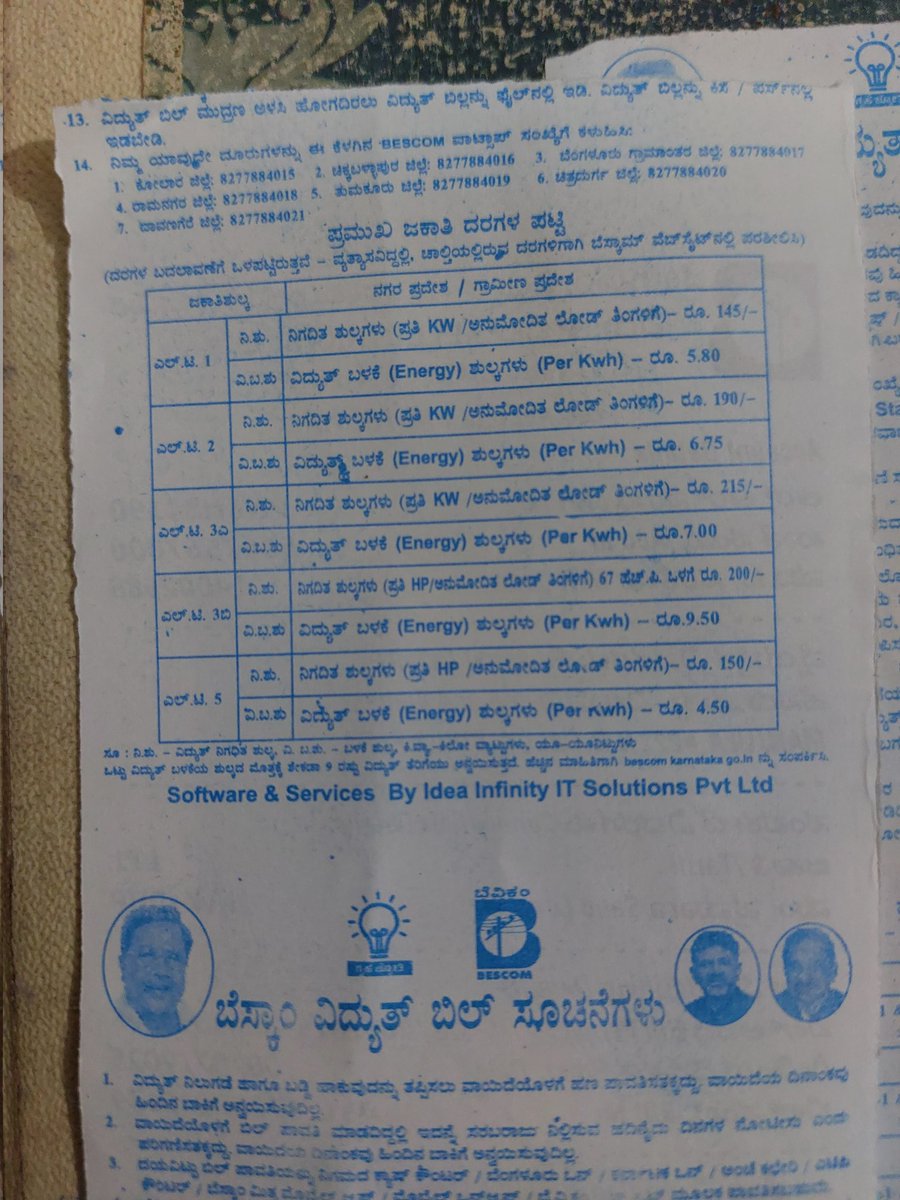 13. ವಿದ್ಯುತ್ ಬಿಲ್ ಮುದ್ರಣ ಅಳಿಸಿ ಹೋಗದಿರಲು ವಿದ್ಯುತ್ ಬಿಲ್ಲನ್ನು ಫೈಲ್‌ನಲ್ಲಿ ಇಡಿ. ವಿದ್ಯುತ್ ಬಿಲ್ಲನ್ನು ಕಿಸೆ / ಪರ್ಸ್‌ನಲ್ಲಿ
ಇಡಬೇಡಿ.
14. ನಿಮ್ಮ ಯಾವುದೇ ದೂರುಗಳನ್ನು ಈ ಕೆಳಗಿನ BESCOM ವಾಟ್ಸಾಪ್ ಸಂಖ್ಯೆಗೆ ಕಳುಹಿಸಿ:
1. ಕೋಲಾರ ಜಿಲ್ಲೆ: 8277884015 2. ಚಿಕ್ಕಬಳ್ಳಾಪುರ ಜಿಲ್ಲೆ: 8277884016 3. ಬೆಂಗಳೂರು ಗ್ರಾಮಾಂತರ ಜಿಲ್ಲೆ: 8277884017
4. ರಾಮನಗರ ಜಿಲ್ಲೆ: 8277884018 5. ತುಮಕೂರು ಜಿಲ್ಲೆ: 8277884019 6. ಚಿತ್ರದುರ್ಗ ಜಿಲ್ಲೆ: 8277884020
7. ದಾವಣಗೆರೆ ಜಿಲ್ಲೆ: 8277884021
ಪ್ರಮುಖ ಜಕಾತಿ ದರಗಳ ಪಟ್ಟಿ
(ದರಗಳ ಬದಲಾವಣೆಗೆ ಒಳಪಟ್ಟಿರುತ್ತದೆ – ವ್ಯತ್ಯಾಸವಿದ್ದಲ್ಲಿ, ಚಾಲ್ತಿಯಲ್ಲಿರುವ ದರಗಳಿಗಾಗಿ ಬೆಸ್ಕಾಮ್ ವೆಬ್‌ಸೈಟ್‌ನಲ್ಲಿ ಪರಿಶೀಲಿಸಿ)
ಜಕಾತಿಶುಲ್ಕ ನಗರ ಪ್ರದೇಶ / ಗ್ರಾಮೀಣ ಪ್ರದೇಶ
ಎಲ್.ಟಿ. 1 ನಿ.ಶು. ನಿಗದಿತ ಶುಲ್ಕಗಳು (ಪ್ರತಿ KW /ಅನುಮೋದಿತ ಲೋಡ್ ತಿಂಗಳಿಗೆ)– ರೂ. 145/–
ವಿ.ಬ.ಶು ವಿದ್ಯುತ್ ಬಳಕೆ (Energy) ಶುಲ್ಕಗಳು (Per Kwh) – ರೂ. 5.80
ಎಲ್.ಟಿ. 2 ನಿ.ಶು. ನಿಗದಿತ ಶುಲ್ಕಗಳು (ಪ್ರತಿ KW /ಅನುಮೋದಿತ ಲೋಡ್ ತಿಂಗಳಿಗೆ)– ರೂ. 190/–
ವಿ.ಬ.ಶು ವಿದ್ಯುತ್ ಬಳಕೆ (Energy) ಶುಲ್ಕಗಳು (Per Kwh) – ರೂ. 6.75
ಎಲ್.ಟಿ. 3ಎ ನಿ.ಶು. ನಿಗದಿತ ಶುಲ್ಕಗಳು (ಪ್ರತಿ KW /ಅನುಮೋದಿತ ಲೋಡ್ ತಿಂಗಳಿಗೆ)– ರೂ. 215/–
ವಿ.ಬ.ಶು ವಿದ್ಯುತ್ ಬಳಕೆ (Energy) ಶುಲ್ಕಗಳು (Per Kwh) – ರೂ.7.00
ಎಲ್.ಟಿ. 3ಬಿ ನಿ.ಶು. ನಿಗದಿತ ಶುಲ್ಕಗಳು (ಪ್ರತಿ HP/ಅನುಮೋದಿತ ಲೋಡ್ ತಿಂಗಳಿಗೆ) 67 ಹೆಚ್.ಪಿ. ಒಳಗೆ ರೂ. 200/–
ವಿ.ಬ.ಶು ವಿದ್ಯುತ್ ಬಳಕೆ (Energy) ಶುಲ್ಕಗಳು (Per Kwh) – ರೂ.9.50
ಎಲ್.ಟಿ. 5 ನಿ.ಶು. ನಿಗದಿತ ಶುಲ್ಕಗಳು (ಪ್ರತಿ HP /ಅನುಮೋದಿತ ಲೋಡ್ ತಿಂಗಳಿಗೆ)– ರೂ. 150/–
ವಿ.ಬ.ಶು ವಿದ್ಯುತ್ ಬಳಕೆ (Energy) ಶುಲ್ಕಗಳು (Per Kwh) – ರೂ. 4.50
ಸೂ : ನಿ.ಶು. – ವಿದ್ಯುತ್ ನಿಗಧಿತ ಶುಲ್ಕ, ವಿ. ಬ.ಶು. – ಬಳಕೆ ಶುಲ್ಕ, ಕಿ.ವ್ಯಾ–ಕಿಲೋ ವ್ಯಾಟ್ಟುಗಳು, ಯೂ–ಯೂನಿಟ್ಟುಗಳು
ಒಟ್ಟು ವಿದ್ಯುತ್ ಬಳಕೆಯ ಶುಲ್ಕದ ಮೊತ್ತಕ್ಕೆ ಶೇಕಡಾ 9 ರಷ್ಟು ವಿದ್ಯುತ್ ತೆರಿಗೆಯು ಅನ್ವಯಿಸುತ್ತದೆ. ಹೆಚ್ಚಿನ ಮಾಹಿತಿಗಾಗಿ bescom karnataka go.in ನ್ನು ಸಂಪರ್ಕಿಸಿ.
Software & Services By Idea Infinity IT Solutions Pvt Ltd
ಗೃಹ ಜ್ಯೋತಿ
ಬೆವಿಕಂ
BESCOM
ಬೆಸ್ಕಾಂ ವಿದ್ಯುತ್ ಬಿಲ್ ಸೂಚನೆಗಳು
1. ವಿದ್ಯುತ್ ನಿಲುಗಡೆ ಹಾಗೂ ಬಡ್ಡಿ ಹಾಕುವುದನ್ನು ತಪ್ಪಿಸಲು ವಾಯಿದೆಯೊಳಗೆ ಹಣ ಪಾವತಿಸತಕ್ಕದ್ದು. ವಾಯಿದೆಯ ದಿನಾಂಕವು
ಹಿಂದಿನ ಬಾಕಿಗೆ ಅನ್ವಯಿಸುವುದಿಲ್ಲ.
2. ವಾಯಿದೆಯೊಳಗೆ ಬಿಲ್ ಪಾವತಿ ಮಾಡದಿದ್ದಲ್ಲಿ ಇದನ್ನೆ ಸರಬರಾಜು ನಿಲ್ಲಿಸುವ ಹದಿನೈದು ದಿನಗಳ ನೋಟೀಸು ಎಂದು
ಪರಿಗಣಿಸತಕ್ಕದ್ದು. ವಾಯಿದೆಯ ದಿನಾಂಕವು ಹಿಂದಿನ ಬಾಕಿಗೆ ಅನ್ವಯಿಸುವುದಿಲ್ಲ.
3. ದಯವಿಟ್ಟು ಬಿಲ್ ಪಾವತಿಯನ್ನು ನಿಗಮದ ಕ್ಯಾಷ್ ಕೌಂಟರ್ / ಬೆಂಗಳೂರು ಒನ್ / ಕರ್ನಾಟಕ ಒನ್ / ಅಂಚೆ ಕಛೇರಿ / ಎಟಿಪಿ
ಕೌಂಟರ್ / ಬೆಸ್ಕಾಂ ಮಿತ್ರ